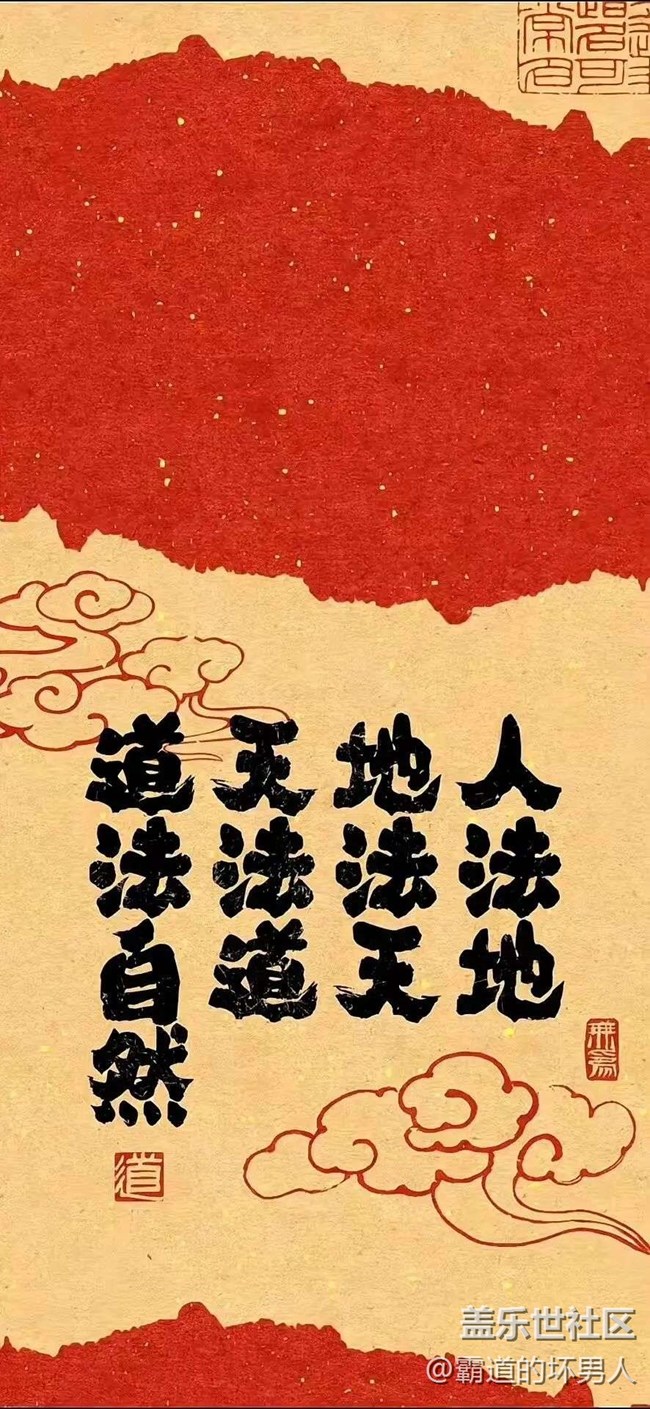 人法地
地法天
天法道
道法自然
無為
道
盖乐世社区
@霸道的坏男人